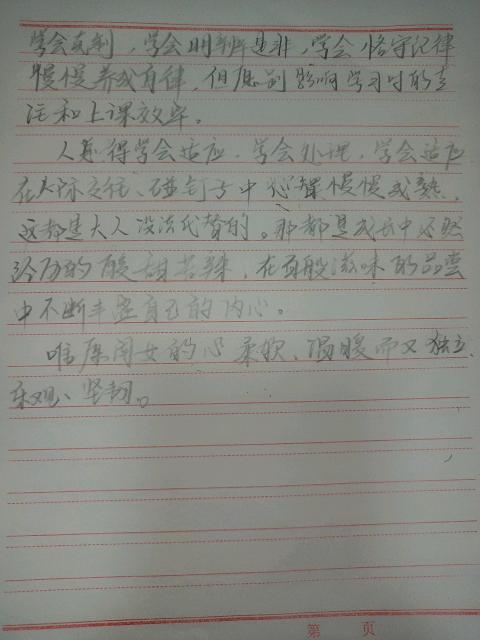 学会克制，学会明辨是非，学会恪守纪律
慢慢养成自律，但愿别影响学习时的专
注和上课效率。
人总得学会适应，学会处理，学会适应
在人际交往、碰钉子中心智慢慢成熟，
这都是大人没法代替的。那都是成长中必然
经历的酸甜苦辣，在百般滋味的品尝
中不断丰盈自己的内心。
唯愿闺女的心柔软、温暖而又独立、
乐观、坚韧。
第 页